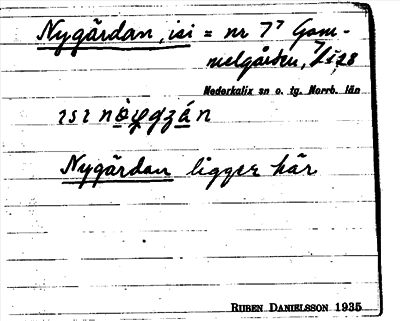 Nygårdan, isi = nr 7⁷ Gam-
melgården,
Nederkalix sn o. tg. Norrb. län
Nygårdan ligger här
RUBEN DANIELSSON 1935